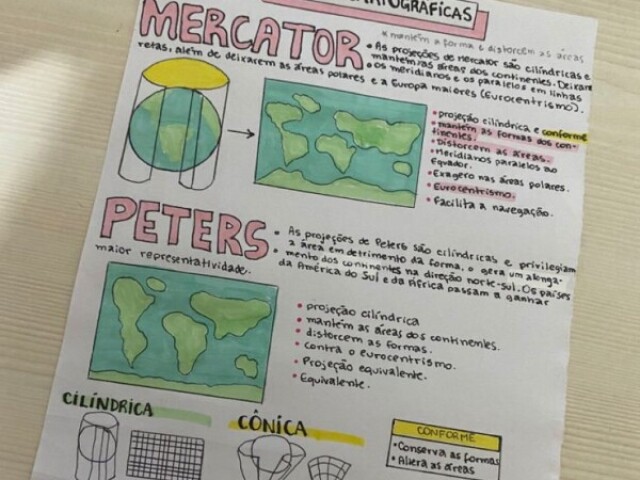 CARTOGRÁFICAS
MERCATOR
* mantém a forma e distorcem as áreas
• As projeções de Mercator são cilíndricas e
mantém as áreas dos continentes. Deixam
• os meridianos e os paralelos em linhas
retas, além de deixarem as áreas polares e a Europa maiores (Eurocentrismo).
• projeção cilíndrica e conforme
• mantém as formas dos con-
tinentes.
• Distorcem as áreas.
• Meridianos paralelos ao
Equador.
• Exagero nas áreas polares.
• Eurocentrismo.
• Facilita a navegação.
PETERS
• As projeções de Peters são cilíndricas e privilegiam
a área em detrimento da forma, o gera um alonga-
• mento dos continentes na direção norte-sul. Os países
da América do Sul e da África passam a ganhar
maior representatividade.
• projeção cilíndrica
• mantém as áreas dos continentes.
• distorcem as formas.
• contra o eurocentrismo.
• Projeção equivalente.
• Equivalente.
CILÍNDRICA
CÔNICA
CONFORME
• Conserva as formas
• Altera as áreas